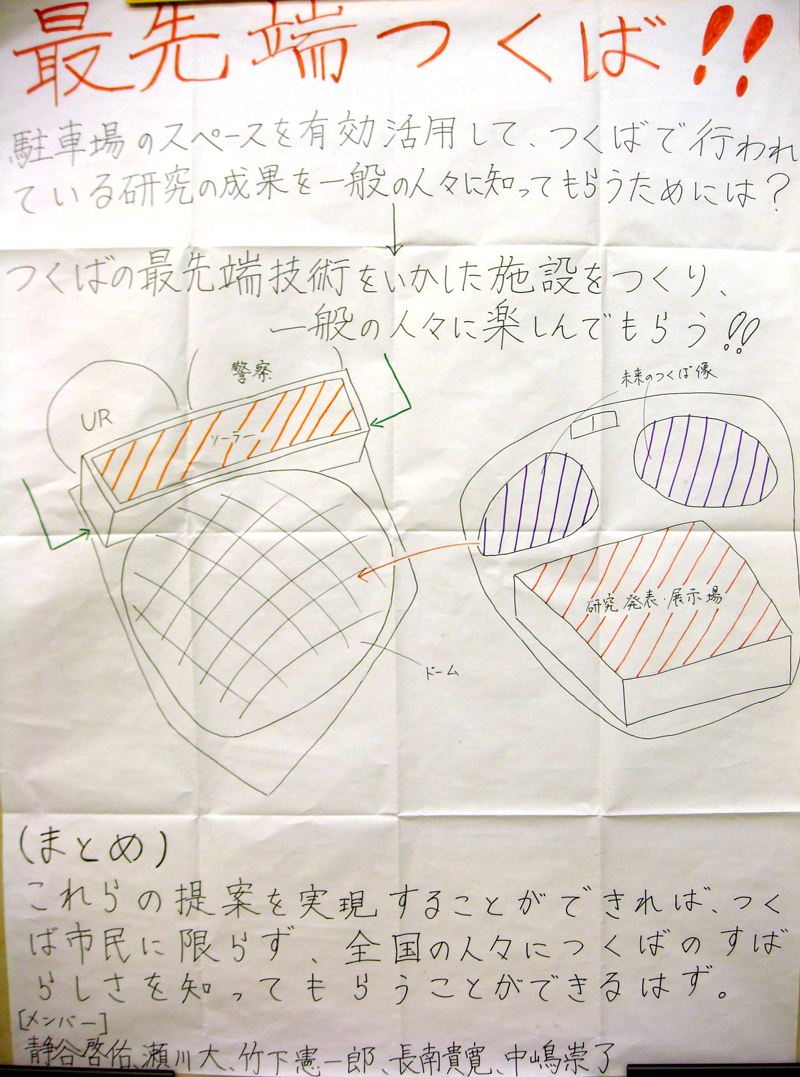 最先端つくば!!
駐車場のスペースを有効活用して、つくばで行われ
ている研究の成果を一般の人々に知ってもらうためには？
つくばの最先端技術をいかした施設をつくり、
一般の人々に楽しんでもらう!!
警察
未来のつくば像
UR
ソーラー
研究発表・展示場
ドーム
(まとめ)
これらの提案を実現することができれば、つく
ば市民に限らず、全国の人々につくばのすば
らしさを知ってもらうことができるはず。
[メンバー]
静谷啓佑、瀬川大、竹下憲一郎、長南貴寛、中嶋崇了